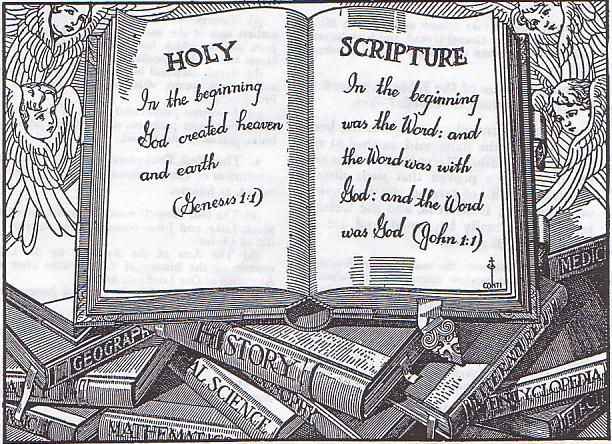 HOLY
In the beginning
God created heaven
and earth
(Genesis 1:1)
SCRIPTURE
In the beginning
was the Word: and
the Word was with
God: and the Word
was God (John 1:1)
CONTI
MEDIC
GEOGRAPH
HISTORY
AL SCIENCE
LITERATURE
ENCYCLOPEDIA
MATHEMATICS